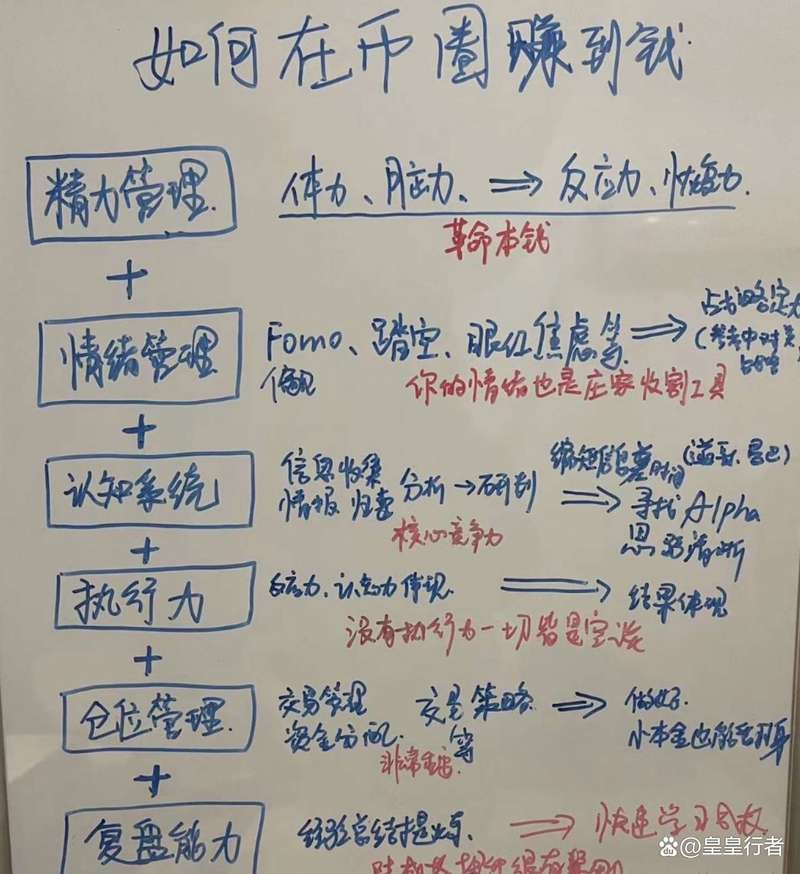 如何在币圈赚到钱
精力管理. 体力、脑力、⇒ 反应力、恢复力.
革命本钱
+
情绪管理 Fomo、踏空、眼红焦虑等 ⇒
偏见
你的情绪也是庄家收割工具
+
认知系统 信息收集 分析→研判 ⇒ 寻找Alpha
情报 归纳
核心竞争力
思路清晰
+
执行力 自律力、认知力体现. ⇒ 结果体现
没有执行力一切皆是空谈
+
仓位管理. 交易管理 交易策略 ⇒ 做好.
资金分配. 等 小本金也能翻身
非常重要.
+
复盘能力 经验总结提炼. ⇒ 快速学习成长
@皇皇行者